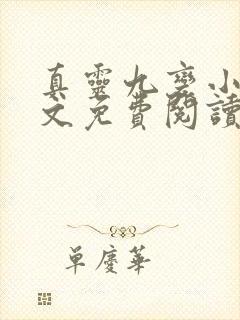 真靈九變小
文免費閱讀
單慶華